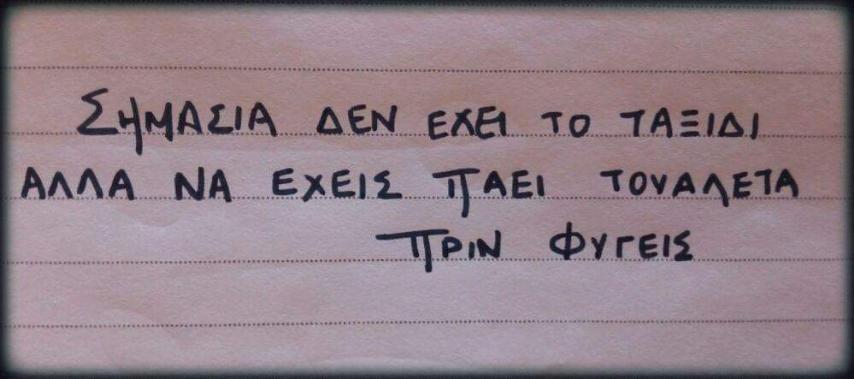 ΣΗΜΑΣΙΑ ΔΕΝ ΕΧΕΙ ΤΟ ΤΑΞΙΔΙ
ΑΛΛΑ ΝΑ ΕΧΕΙΣ ΠΑΕΙ ΤΟΥΑΛΕΤΑ
ΠΡΙΝ ΦΥΓΕΙΣ